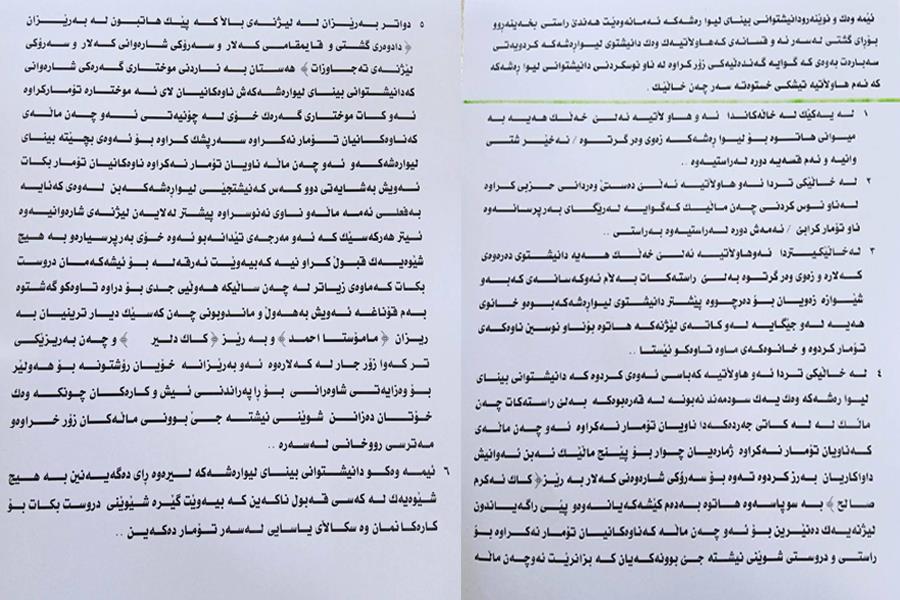 ئێمە وەك و نوێنەرودانیشتوانی بینای لیوا ڕەشەکە ئەمانەوەێت هەندێ راستی بخەینەڕوو
بۆڕای گشتی لەسەر ئە و قسانەی کەهاوڵاتیەك وەك دانیشتوی لیوارەشەکە کردویەتی
سەبارەت بەوەی کە گوایە گەندەڵیەکی زۆر کراوە لە ناو نوسکردنی دانیشتوانی لیوا ڕەشەکە
کە ئەم هاوڵاتیە تیشکی خستوەتە سەر چەن خاڵێك .
١ لە یەکێك لە خاڵەکاندا ئە و هاو ڵاتیە ئەڵێ خەڵك هەیە بە
میوانی هاتوە بۆ لیوا ڕەشەکە زەوی وەر گرتوە / نەخێر شتی
وانیە و ئەم قسەیە دورە لەراستیەوە ..
٢ لە خاڵێکی تردا ئەو هاوڵاتیە ئەڵێ دەستێ وەردانی حزبی کراوە
لەناو نوس کردنی چەن ماڵێك کەگوایە لەرێگای بەرپرسانەوە
ناو تۆمار کرابێ / ئەمەش دورە لەراستیەوە بەراستی ..
٣ لەخاڵێکیتردا ئەوهاوڵاتیە ئەڵێ خەڵك هەیە دانیشتوی دەرەوەی
کەلارە و زەوی وەر گرتوە بەڵێ راستەکات بەڵام ئەوکەسانەی کەبەو
شێوازە زەویان بۆ دەرچووە پێشتر دانیشتوی لیوارەشەکەبوەو خانوی
هەیە لەو جێگایە لەو کاتەی لێژنەکە هاتوە بۆناو نوسین ناوەکەی
تۆمار کردوە و خانوەکەی ماوە تاوەکو ئێستا ..
٤ لە خاڵێکی تردا ئەو هاوڵاتیە کەباسی ئەوەی کردوە کە دانیشتوانی بینای
لیوا ڕەشەکە وەك یەك سودمەند نەبونە لە قەرەبوەکە بەڵێ راستەکات چەن
ماڵێك لە لە کاتی جەردەکەدا ناویان تۆمار نەکراوە ئەو چەن ماڵەی
کەناویان تۆمار نەکراوە ژمارەیان چوار بۆ پێنج ماڵێك ئەبن ئەوانیش
داواکاریان بەرز کردوە تەوە بۆ سەرۆکی شارەوەنی کەلار بە رێز﴿کاك ئەکرم
صالح﴾ بە سوپاسەوە هاتوە بەدەم کێشەکەیانەوەو پێی راگەیاندون
لیژنەیەك دەنێرین بۆ ئەو چەن ماڵە کەناوەکانیان تۆمار نەکراوە بۆ
راستی و دروستی شوێنی نیشتە جێ بوونەکەیان کە بزانرێت ئەوچەن ماڵە
٥ دواتر بەرێزان لە لیژنەی بالاَ کە پێك هاتبون لە بەرێزان
﴿دادوەری گشتی و قایمقامی کەلار و سەرۆکی شارەوانی کەلار و سەرۆکی
لێژنەی تەجاوزات﴾ هەستان بە ناردنی موختاری گەرەکی شارەوانی
کەدانیشتوانی بینای لیوارەشەکەش ناوەکانیان لای ئە موختارە تۆمارکراوە
ئەو کات موختاری گەرەك خۆی لە چۆنیەتی ئەو چەن ماڵەی
کەناوەکانیان تۆمار نەکراوە سەرپشك کراوە بۆ ئەوەی بچێتە بینای
لیوارەشەکەو ئەو چەن ماڵە ناویان تۆمار نەکراوە ناوەکانیان تۆمار بکات
ئەویش بەشایەتی دوو کەس کەنیشتجێی لیوارەشەکەبن لەوەی کەئایە
بەفعلی ئەمە ماڵەو ناوی نەنوسراوە پیشتر لەلایەن لیژنەی شارەوانیەوە
ئیتر هەرکەسێك کە ئەو مەرجەی تێدانەبو ئەوە خۆی بەرپرسیارەو بە هیچ
شێوەیەك قبوڵ کراو نیە کەبیەوێت ئەرقەلە بۆ نیشەکەمان دروست
بکات کەماوەی زیاتر لە چەن ساڵێکە هەوڵیی جدی بۆ دراوە تاوەکو گەشتوە
بەم قۆناغە ئەویش بەهەوڵ و ماندوبونی چەن کەسێك دیار ترینیان بە
ریزان ﴿مامۆستا احمد﴾ و بە رێز ﴿کاك دلیر ﴾ و چەن بەریزێکی
تر کەوا زۆر جار لە کەلارەوە ئەو بەرێزانە خۆیان رۆشتونە بۆ هەولێر
بۆ وەزایەتی شاوەرانی بۆ ڕاپەراندنی ئیش و کارەکان چونکە وەك
خۆتان دەزانن شوێنی نیشتە جێ بوونی ماڵەکان زۆر خراوەو
مەترسی رووخانی لەسەرە ..
٦ ئیمە وەکو دانیشتوانی بینای لیوارەشەکە لیرەوە رای دەگەیەنین بە هیچ
شێوەیەك لە کەسی قەبول ناکەین کە بیەوێت گێرە شێوێنی دروست بکات بۆ
کارەکانمان وە سکالاَی یاسایی لەسەر تۆمار دەکەین ..